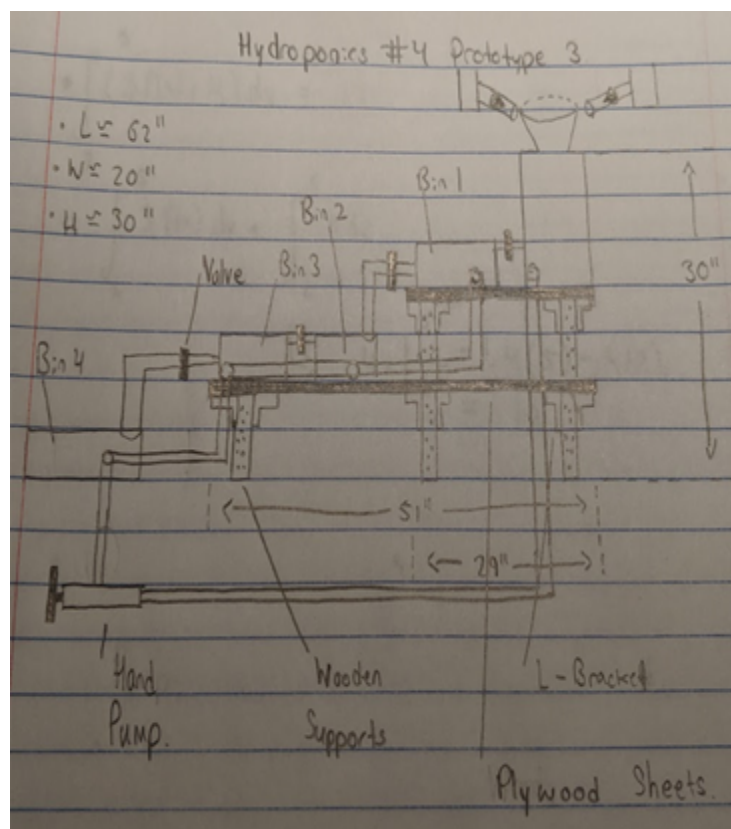 Hydroponics #4 Prototype 3
• L ≈ 62"
• W ≈ 20"
• H ≈ 30"
Bin 1
Bin 2
Valve
Bin 3
30"
Bin 4
51"
29"
Hand
Pump.
Wooden
Supports
L-Bracket
Plywood Sheets.